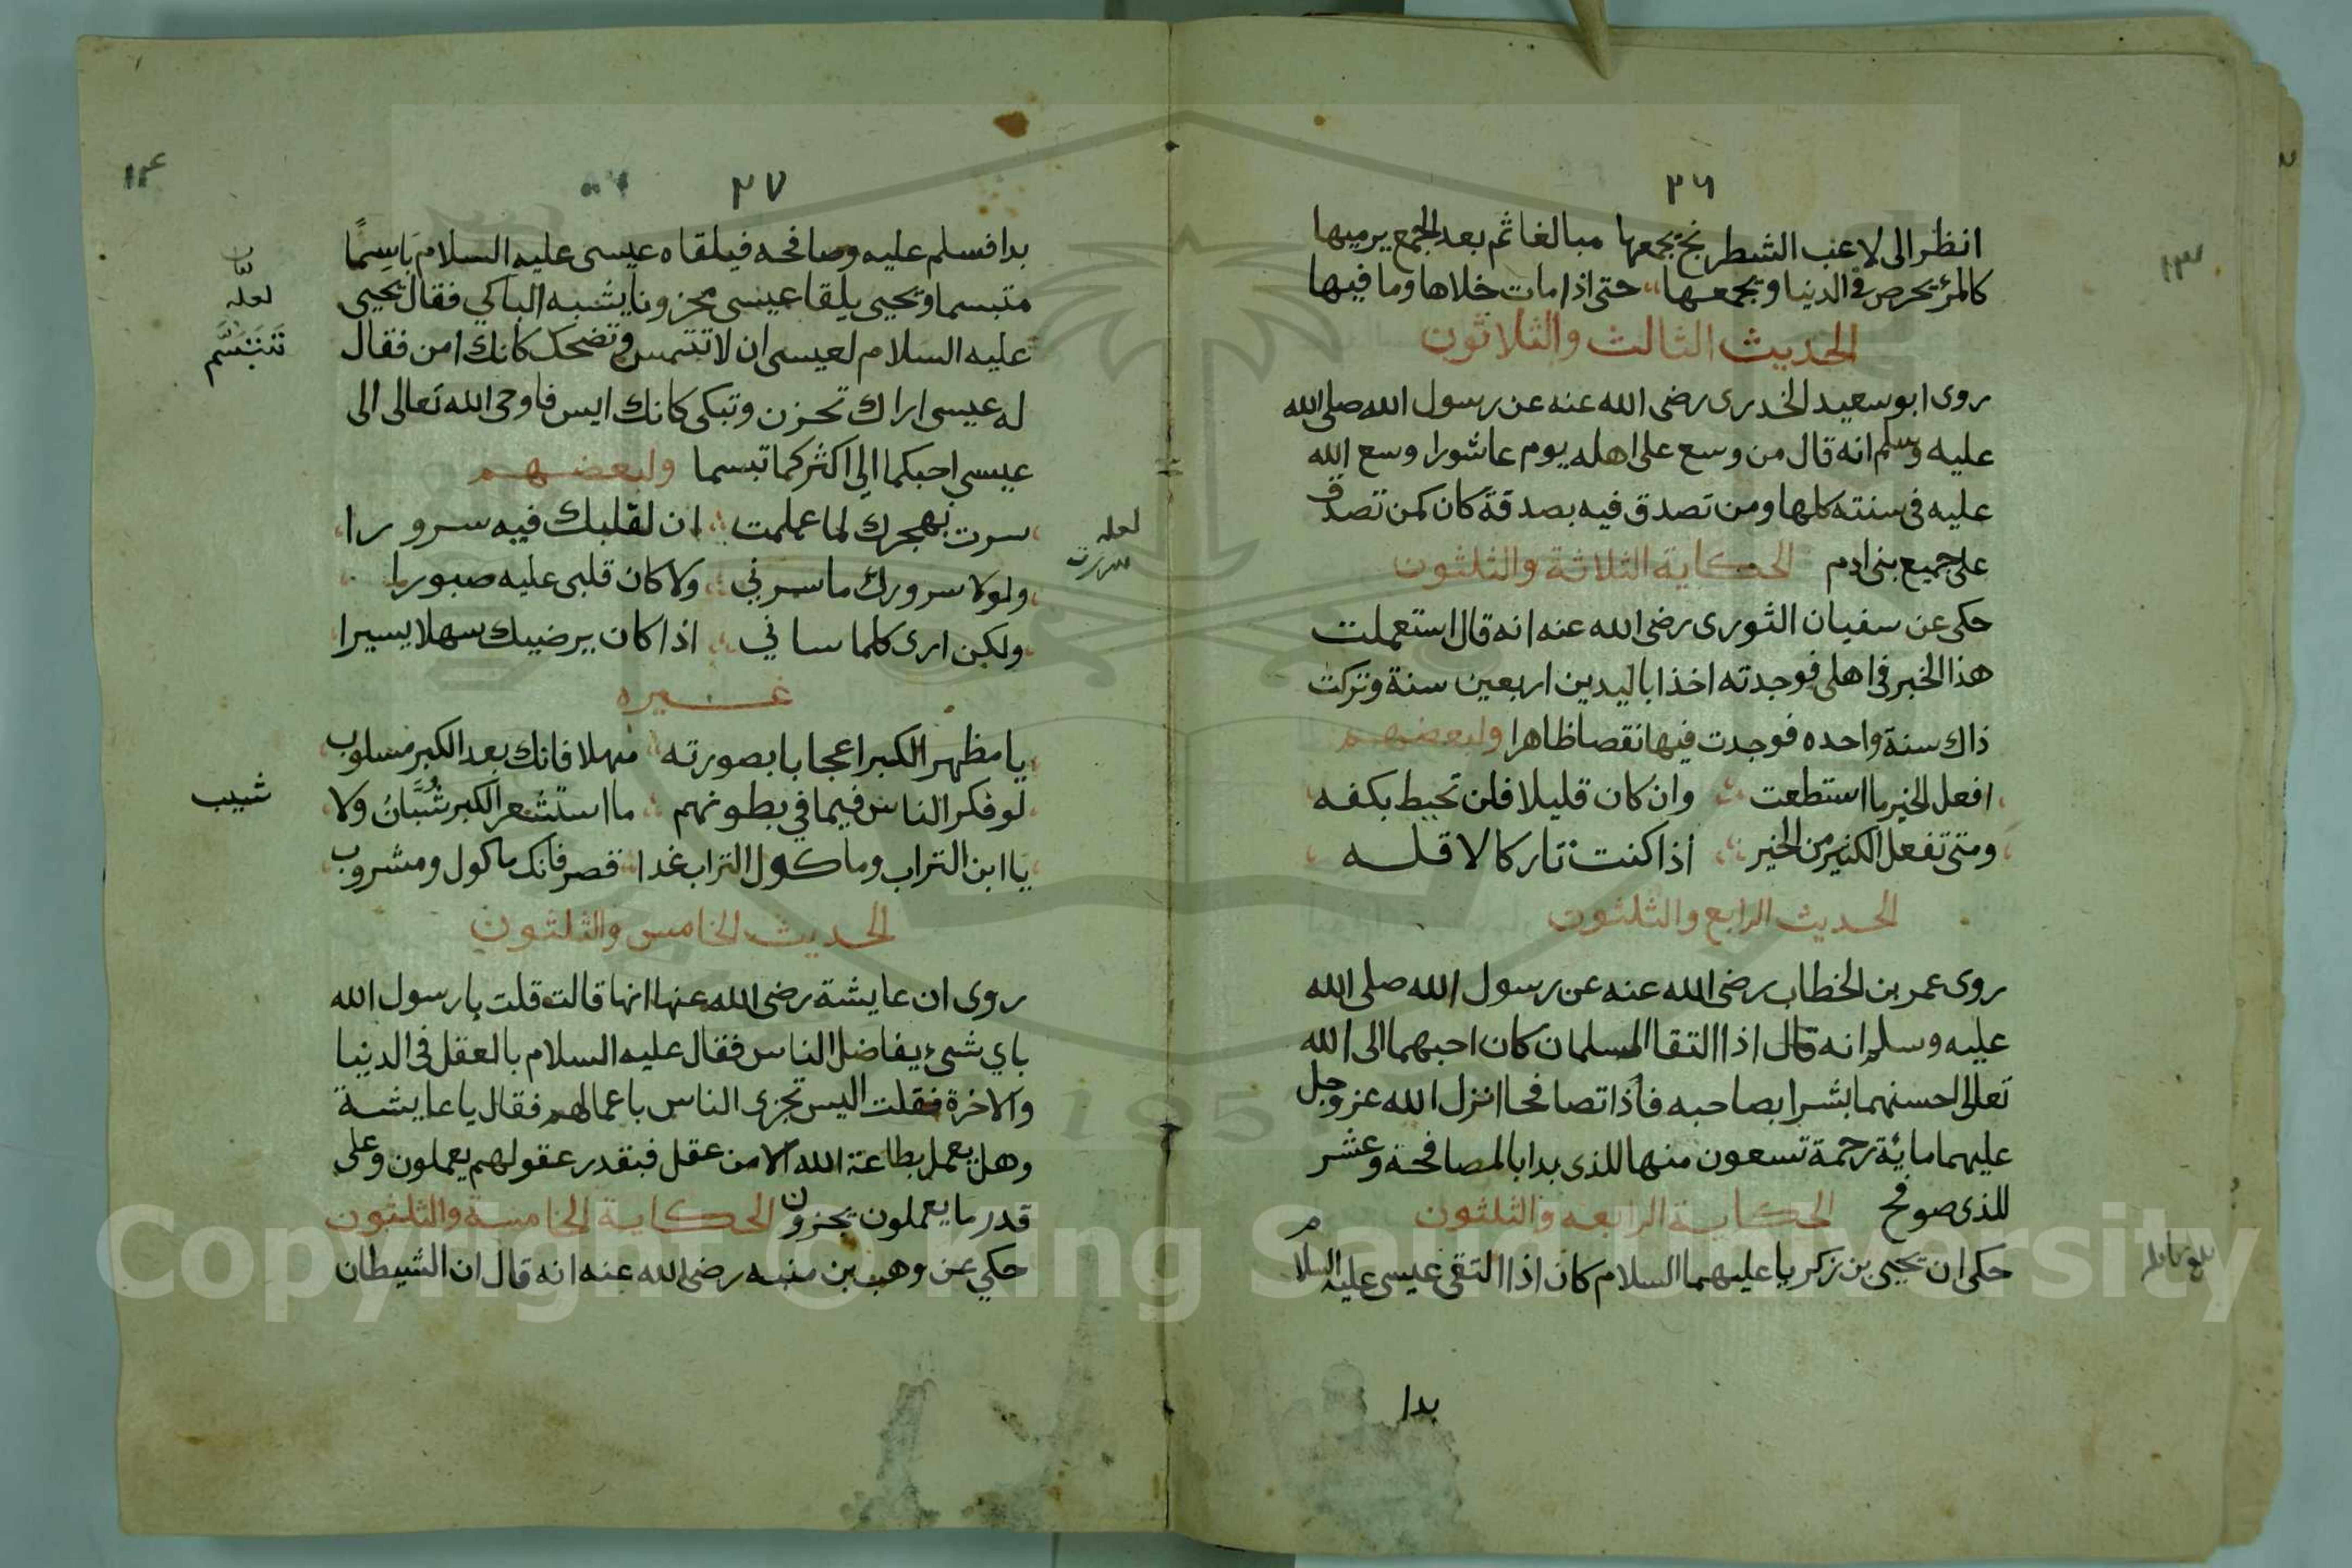 ٢٦
١٣
انظر الى لاعب الشطرنج يجمعها مبالغا ثم بعد الجمع يرميها
كالمرؤ يحرص في الدنيا ويجمعها حتى اذا مات خلاها وما فيها
الحديث الثالث والثلاثون
روى ابو سعيد الخدرى رضى الله عنه عن رسول الله صلى الله
عليه وسلم انه قال من وسع على اهله يوم عاشورا وسع الله
عليه فى سنته كلها ومن تصدق فيه بصدقة كان كمن تصدق
على جميع بنى ادم الحكاية الثلاثة والثلثون
حكى عن سفيان الثورى رضى الله عنه انه قال استعملت
هذا الخبر فى اهلى فوجدته اخذا باليدين اربعين سنة وتركت
ذاك سنة واحده فوجدت فيها نقصا ظاهرا ولبعضهم
افعل الخير ما استطعت وان كان قليلا فلن تحيط بكفه
ومتى تفعل الكثير من الخير اذا كنت تاركا لاقله
الحديث الرابع والثلثون
روى عمر بن الخطاب رضى الله عنه عن رسول الله صلى الله
عليه وسلم انه قال اذا التقا المسلمان كان احبهما الى الله
تعالى احسنهما بشرا بصاحبه فاذا تصافحا انزل الله عز وجل
عليهما مائة رحمة تسعون منها للذى بدا بالمصافحة وعشر
للذى صوفح الحكاية الرابعه والثلثون
حكى ان يحيى بن زكريا عليهما السلام كان اذا التقى عيسى عليه السلام
بدا
٢٧
١٤
بدا فسلم عليه وصافحه فيلقاه عيسى عليه السلام باسِمًا
متبسما ويحيى يلقا عيسى محزونا يشبه الباكي فقال يحيى
عليه السلام لعيسى ان لا تتمس وتضحك كانك امن فقال
له عيسى اراك تحزن وتبكى كانك ايس فاوحى الله تعالى الى
عيسى احبكما الي اكثركما تبسما ولبعضهم
سرت بهجرك لما علمت ان لقلبك فيه سرورا
ولولا سرورك ما سرني ولا كان قلبى عليه صبورا
ولكن ارى كلما ساني اذا كان يرضيك سهلا يسيرا
غيره
يا مظهر الكبر اعجابا بصورته مهلا فانك بعد الكبر مسلوب
لو فكر الناس فيما في بطونهم ما استشعر الكبر شُبَّانُ ولا
يا ابن التراب وماكول التراب غدا قصر فانك ماكول ومشروب
الحديث الخامس والثلثون
روى ان عايشة رضى الله عنها انها قالت قلت يا رسول الله
باي شىء يفاضل الناس فقال عليه السلام بالعقل فى الدنيا
والاخرة فقلت اليس تجزى الناس باعمالهم فقال يا عايشة
وهل يعمل بطاعة الله الا من عقل فبقدر عقولهم يعملون وعلى
قدر ما يعملون يجزون الحكاية الخامسة والثلثون
حكي عن وهب بن منبه رضى الله عنه انه قال ان الشيطان
لعله
تَتَبَسَّم
لعله
سررت
شيب
Copyright © King Saud University